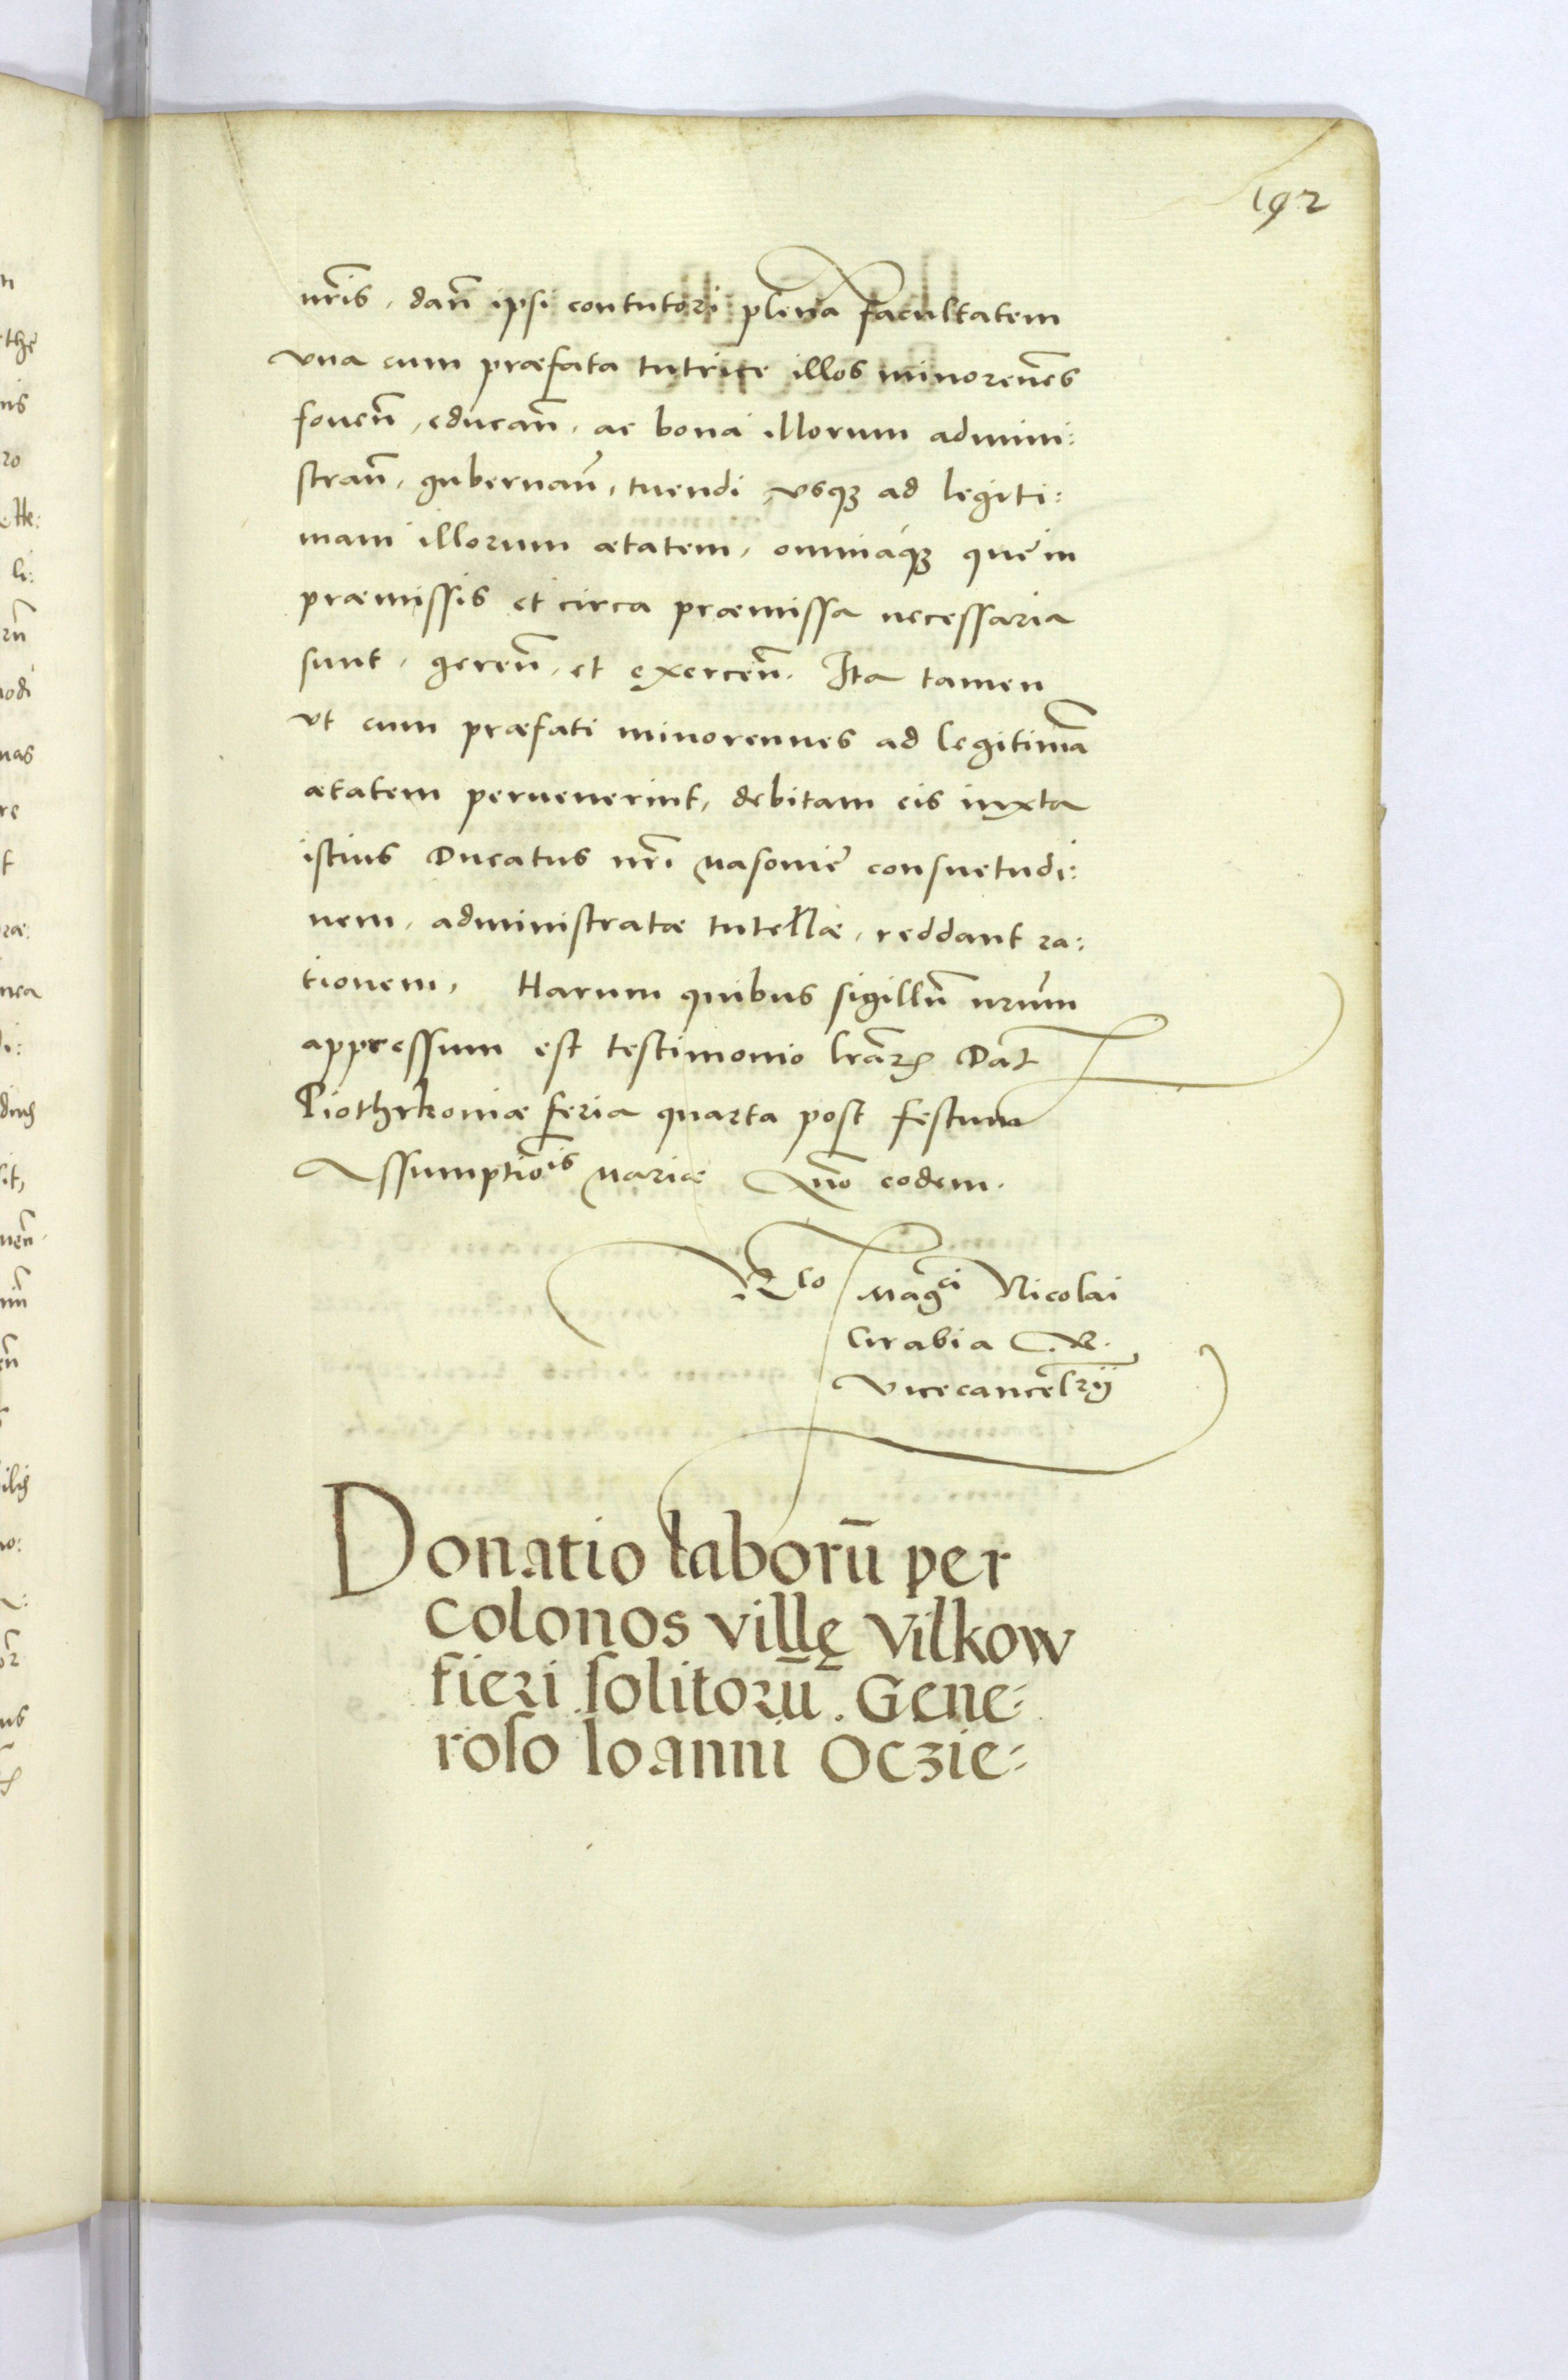 192
nr̃is, dan̄ ipsi contutori plenā facultatem
vna cum præfata tutrice illos minoren̄es
fouen̄, educan̄, ac bona illorum admini:
stran̄, gubernan̄, tuendi, vsqꝫ ad legiti:
mam illorum ætatem, omniaqꝫ que in
præmissis et circa præmissa necessaria
sunt, geren̄, et exercen̄. Ita tamen
vt cum præfati minorennes ad legitimā
ætatem peruenerint, debitam eis iuxta
istius Ducatus nr̃i Masouię consuetudi:
nem, administratæ tutellæ, reddant ra:
tionem, Harum quibus sigillū nr̃um
appressum est testimonio lr̃arꝫ Dat̄
Piothrkoniæ feria quarta post festum
Assumptiōis Mariæ Anō eodem.
Rlo Magci Nicolai
Grabia C. R.
Vicecancel̄rij
Donatio laborū per
colonos villę Vilkow
fieri solitorū. Gene:
roso Ioanni Oczie: